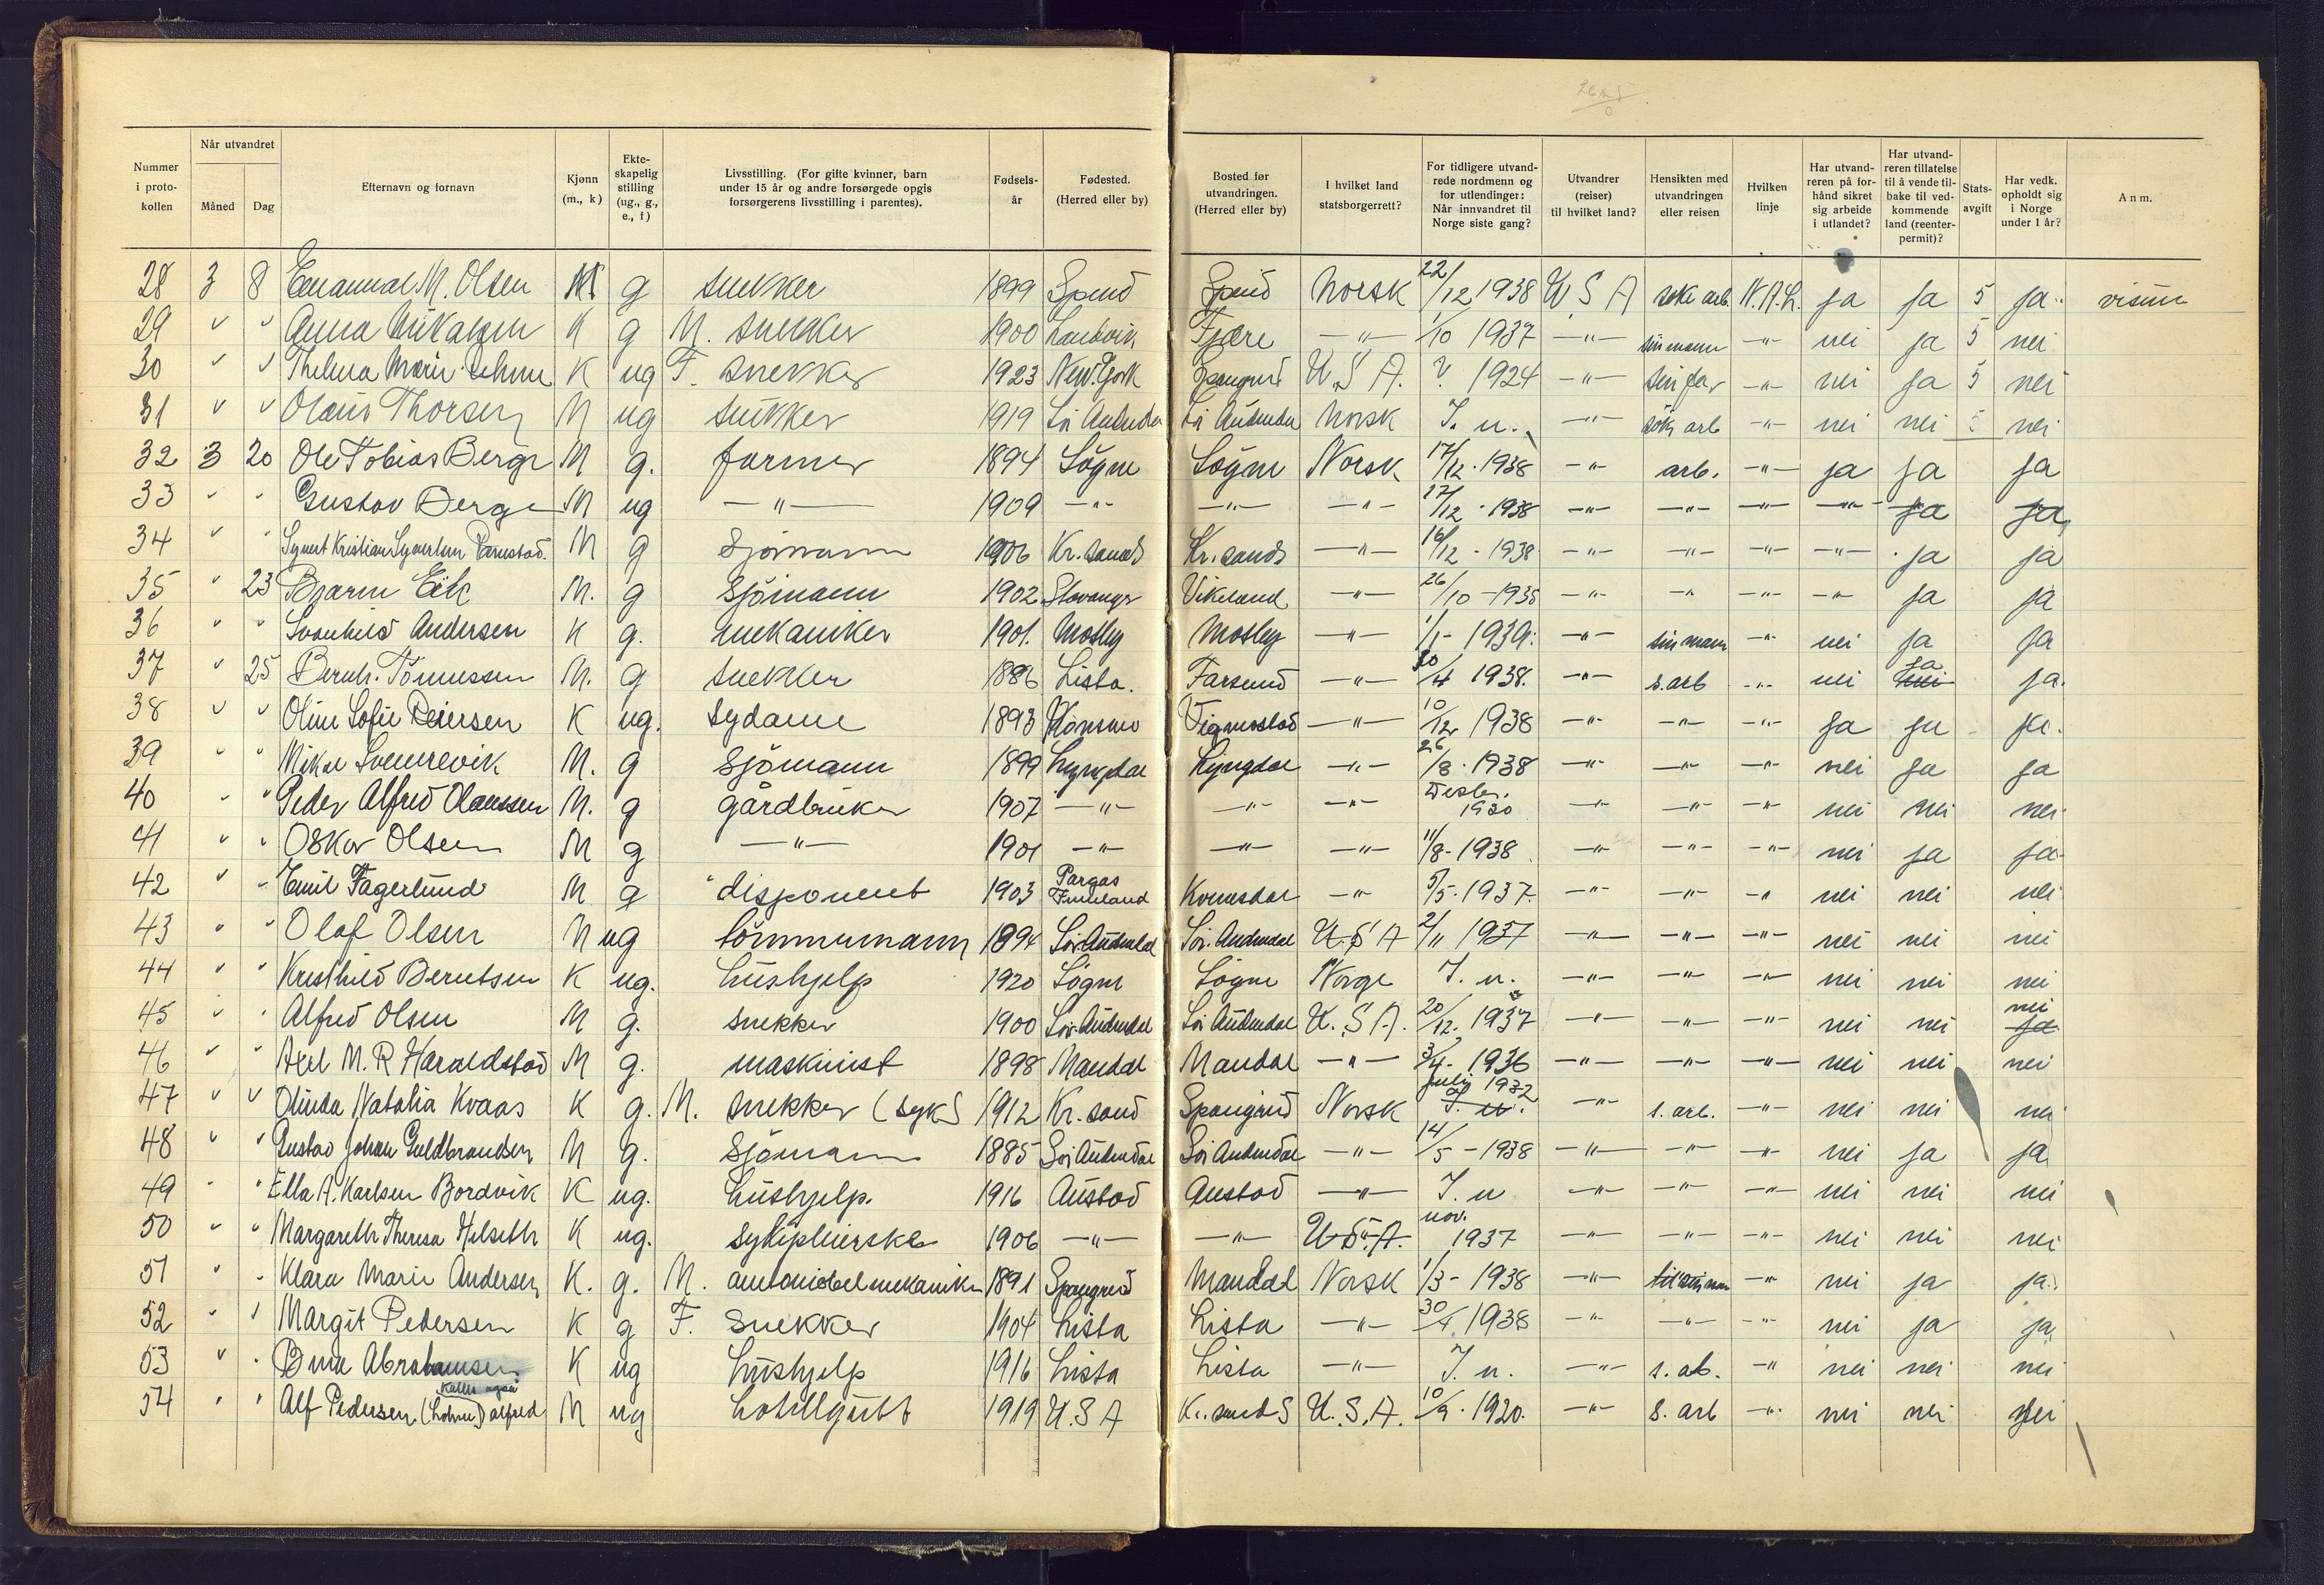 Nummer i protokollen | Når utvandret Måned | Dag | Efternavn og fornavn | Kjønn (m., k) | Ekteskapelig stilling (ug., g., e., f) | Livsstilling. (For gifte kvinner, barn under 15 år og andre forsørgede opgis forsørgerens livsstilling i parentes). | Fødselsår | Fødested. (Herred eller by) | Bosted før utvandringen. (Herred eller by) | I hvilket land statsborgerrett? | For tidligere utvandrede nordmenn og for utlendinger: Når innvandret til Norge siste gang? | Utvandrer (reiser) til hvilket land? | Hensikten med utvandringen eller reisen | Hvilken linje | Har utvandreren på forhånd sikret sig arbeide i utlandet? | Har utvandreren tillatelse til å vende tilbake til vedkommende land (reenterpermit)? | Statsavgift | Har vedk. opholdt sig i Norge under 1 år? | Anm.
28 3 8 Emanuel M. Olsen M g snekker 1899 Norsk 22/12 1938 U S A søke arb. N.A.L. ja ja 5 ja visum
29 " " Anna K g M. snekker 1900 Landvik Fjære -"- 1/10 1937 -"- sin mann -"- nei ja 5 nei
30 " " Thelma Marie K ug F. snekker 1923 New York Spangereid U.S.A. ? 1924 -"- sin far -"- nei ja 5 nei
31 " " Olaus Thorsen M ug snekker 1919 Sør Audnedal Sør Audnedal Norsk I. u. -"- søke arb -"- nei nei 5 nei
32 3 20 Ole Tobias Berge M g. farmer 1894 Søgne Søgne Norsk 17/12 . 1938 -"- arb. -"- ja ja ja
33 " " Gustav Berge M ug -"- 1909 -"- -"- -"- 17/12 - 1938 -"- -"- -"- -"- ja ja
34 " " Syvert Kristian Syvertsen M g Sjømann 1906 Kr.sand S Kr.sand S -"- 16/12 - 1938 -"- -"- -"- -"- ja ja
35 " 23 Bjarne Eik M. g Sjömann 1902 Stavanger Vikeland -"- 26/10 -1938 -"- -"- -"- -"- ja ja
36 " " Svanhild Andersen K g. mekaniker 1901. Mosby Mosby -"- 1/1 - 1939. -"- sin mann -"- nei ja ja
37 " 25 Bernh. Tönnessen M. g snekker 1886 Lista. Farsund -"- 30/4 1938. -"- s. arb -"- nei ja nei ja.
38 " " Oline Sofie K ug. sydame 1893 Konsmo Vigmostad -"- 10/12 1938 -"- -"- -"- ja ja ja.
39 " " Mikal Svennevik M. g Sjömann 1899 Lyngdal Lyngdal -"- 26/8 . 1938 -"- -"- -"- nei ja ja
40 " " Peder Alfred Olaussen M. g gårdbruker 1907 -"- -"- -"- Desbr. 1930 -"- -"- -"- nei nei nei
41 " " Oskar Olsen M g -"- 1901 -"- -"- -"- 11/8 - 1938 -"- -"- -"- nei ja ja
42 " " Emil Fagerlund M g disponent 1903 Pargas Finnland Kvinesdal -"- 5/5 . 1937. -"- -"- -"- nei nei nei
43 " " Olaf Olsen M ug tömmermann 1894 Sör Audnedal Sör. Audnedal U.S A 2/11 1937 -"- -"- -"- nei nei nei
44 " " Berntsen K ug. hushjelp 1920 Sögne Sögne Norge I. u. -"- -"- -"- nei nei nei
45 " " Alfred Olsen M g. snekker 1900 Sör-Audnedal Sör Audnedal U.S.A. 20/12. 1937 -"- -"- -"- nei nei nei ja
46 " " Axel M. R Haraldstad M g. maskinist 1898 Mandal Mandal -"- 3/4 - 1936 -"- -"- -"- nei nei nei
47 " " Olinda Natalia Kvaas K g. M. snekker 1912 Kr.sand Spangereid Norsk juli 1932 I. u. -"- s. arb. -"- nei nei nei
48 " " Gustav Johan Guldbrandsen M g. Sjömann 1885 Sör Audnedal Sör Audnedal -"- 14/5 - 1938 -"- -"- -"- nei ja ja
49 " " Ella A. Karlsen Bordvik K ug. hushjelp. 1916 Austad Austad -"- I. u -"- -"- -"- nei nei nei
50 " " Margareth Theresa Helseth K ug. sykepleierske 1906 -"- -"- U.S.A. nov. 1937 -"- -"- -"- nei nei nei
51 " " Klara Marie Andersen K. g. M. automobilmekaniker 1891 Spangereid Mandal Norsk 1/3 - 1938 -"- til sin man -"- nei ja ja.
52 " " Margit Pedersen K g F. snekker 1904 Lista Lista -"- 30/4 . 1938 -"- -"- -"- nei ja ja
53 " " Abrahamsen K ug hushjelp 1916 Lista Lista -"- I. u. -"- s. ab. -"- nei nei nei
54 " " Alf Pedersen, kalles også alfred M ug hotellgutt 1919 U.S A Kr. sand S U.S.A. 10/9 . 1920. -"- s. arb -"- nei nei nei